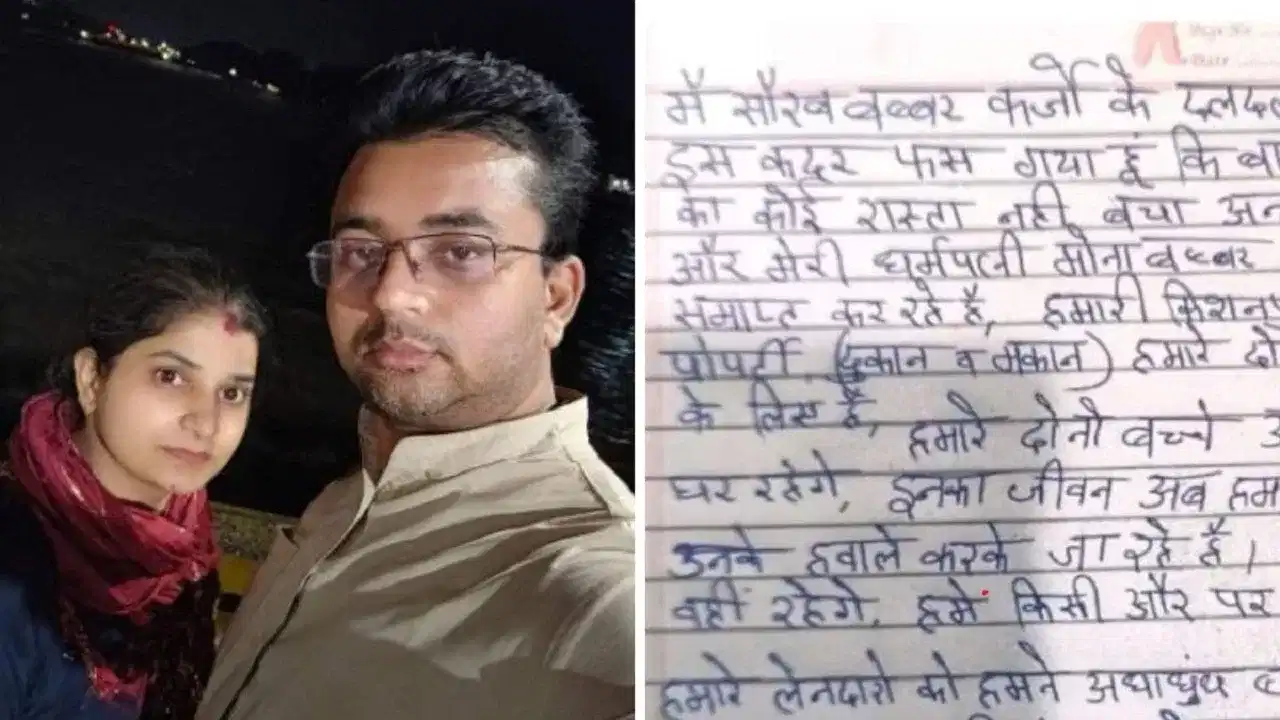 मै सौरब बब्बर कर्जो के दलदल
इस कदर फस गया हूं कि बा
का कोई रास्ता नही बचा अन
और मेरी धर्मपत्नी मोना बब्बर
समाप्त कर रहे है, हमारी किशनप
प्रोपर्टी (दुकान व मकान) हमारे दो
के लिए है, हमारे दोनो बच्चे अ
घर रहेगे, इनका जीवन अब हम
उनके हवाले करके जा रहे है।
वही रहेगे, हमें किसी और पर
हमारे लेनदारो को हमने अंधाधुंध